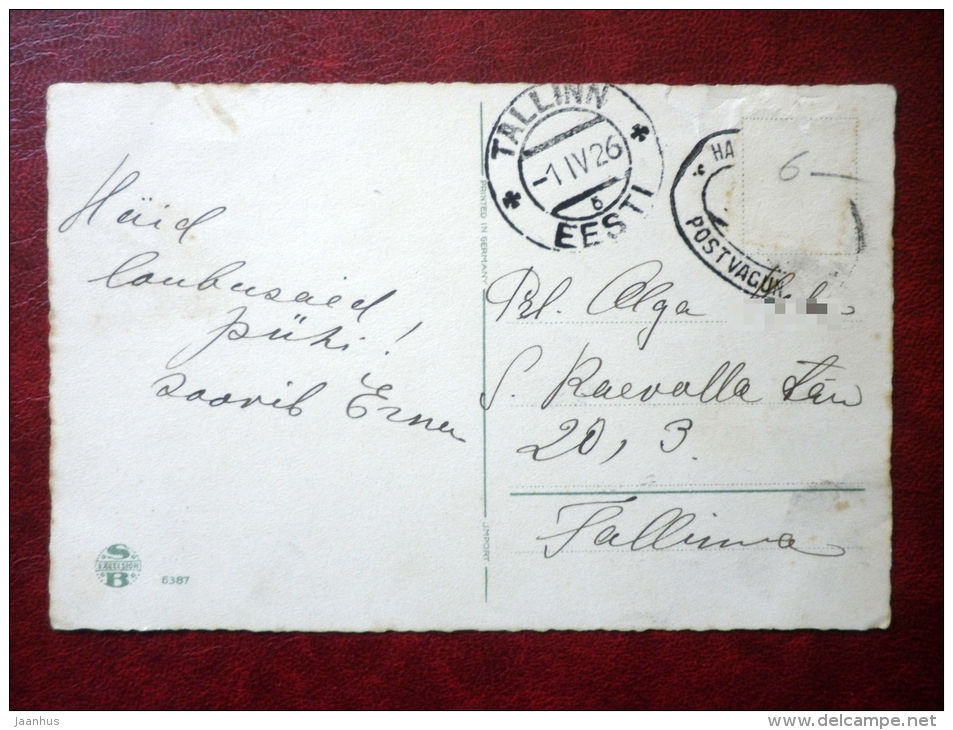 TALLINN
-1 IV 26
6
EESTI
HA
POSTVAGUN
6 —
Häid
loubusaid
pühi!
soovib Erna
Prl. Olga
S. Kaevalla tän
20, 3.
Tallinna
PRINTED IN GERMANY
IMPORT
S
EXCELSIOR
B
6387
jaanhus
www.delcampe.net